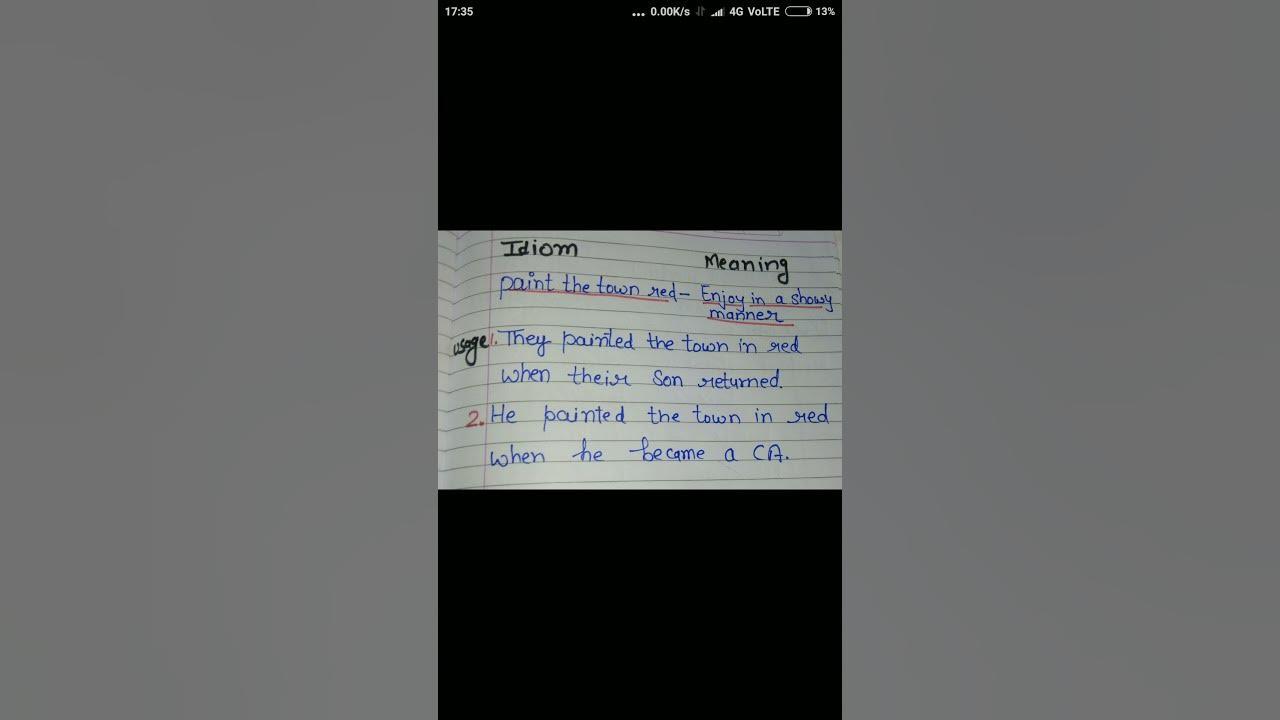 17:35 ... 0.00K/s 4G VoLTE 13%
Idiom
Meaning
paint the town red - Enjoy in a showy
manner
usage 1. They painted the town in red
when their Son returned.
2. He painted the town in red
when he became a CA.